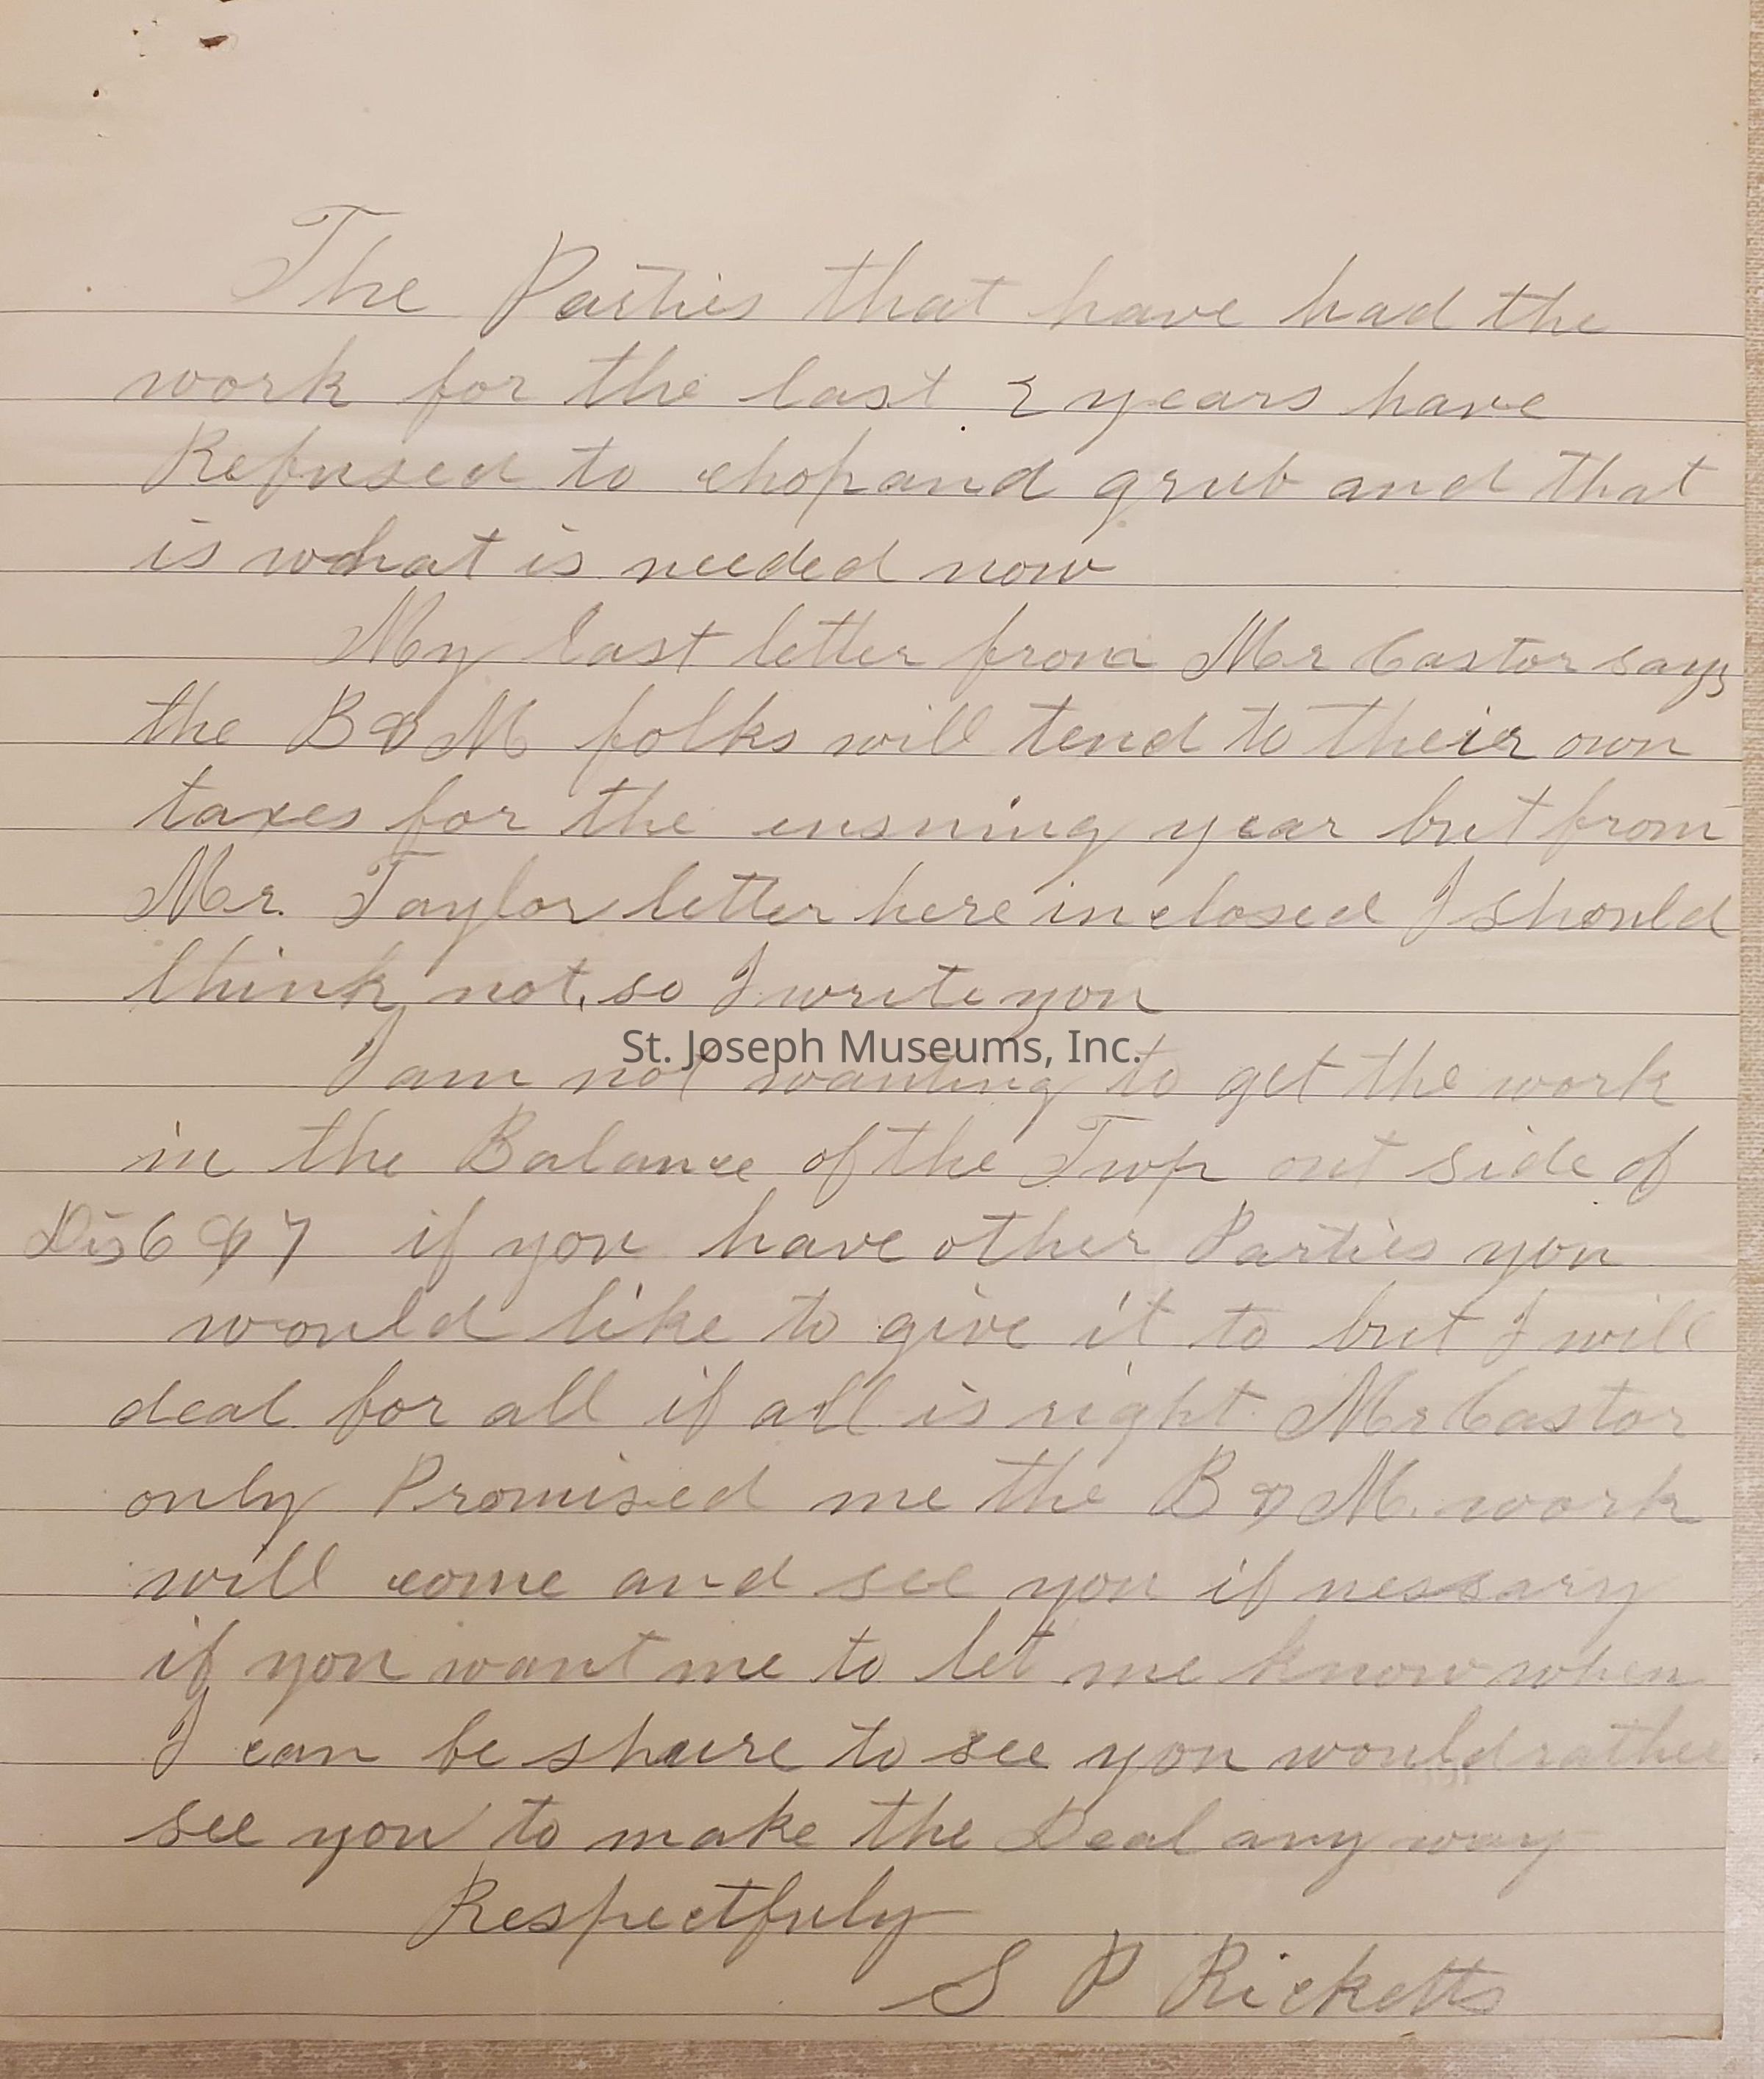 The Parties that have had the
work for the last 2 years have
Refused to chop and grub and that
is what is needed now
My last letter from Mr Castor says
the B & M folks will tend to their own
taxes for the ensuing year but from
Mr. Taylor letter here inclosed I should
think not, so I write you
St. Joseph Museums, Inc.
I am not wanting to get the work
in the Balance of the Twp out side of
Dis 6 & 7 if you have other Parties you
would like to give it to but I will
deal for all if all is right Mr Castor
only Promised me the B & M. work
will come and see you if nessary
if you want me to let me know when
I can be shure to see you would rather
see you to make the Deal any way
Respectfuly
S P Ricketts